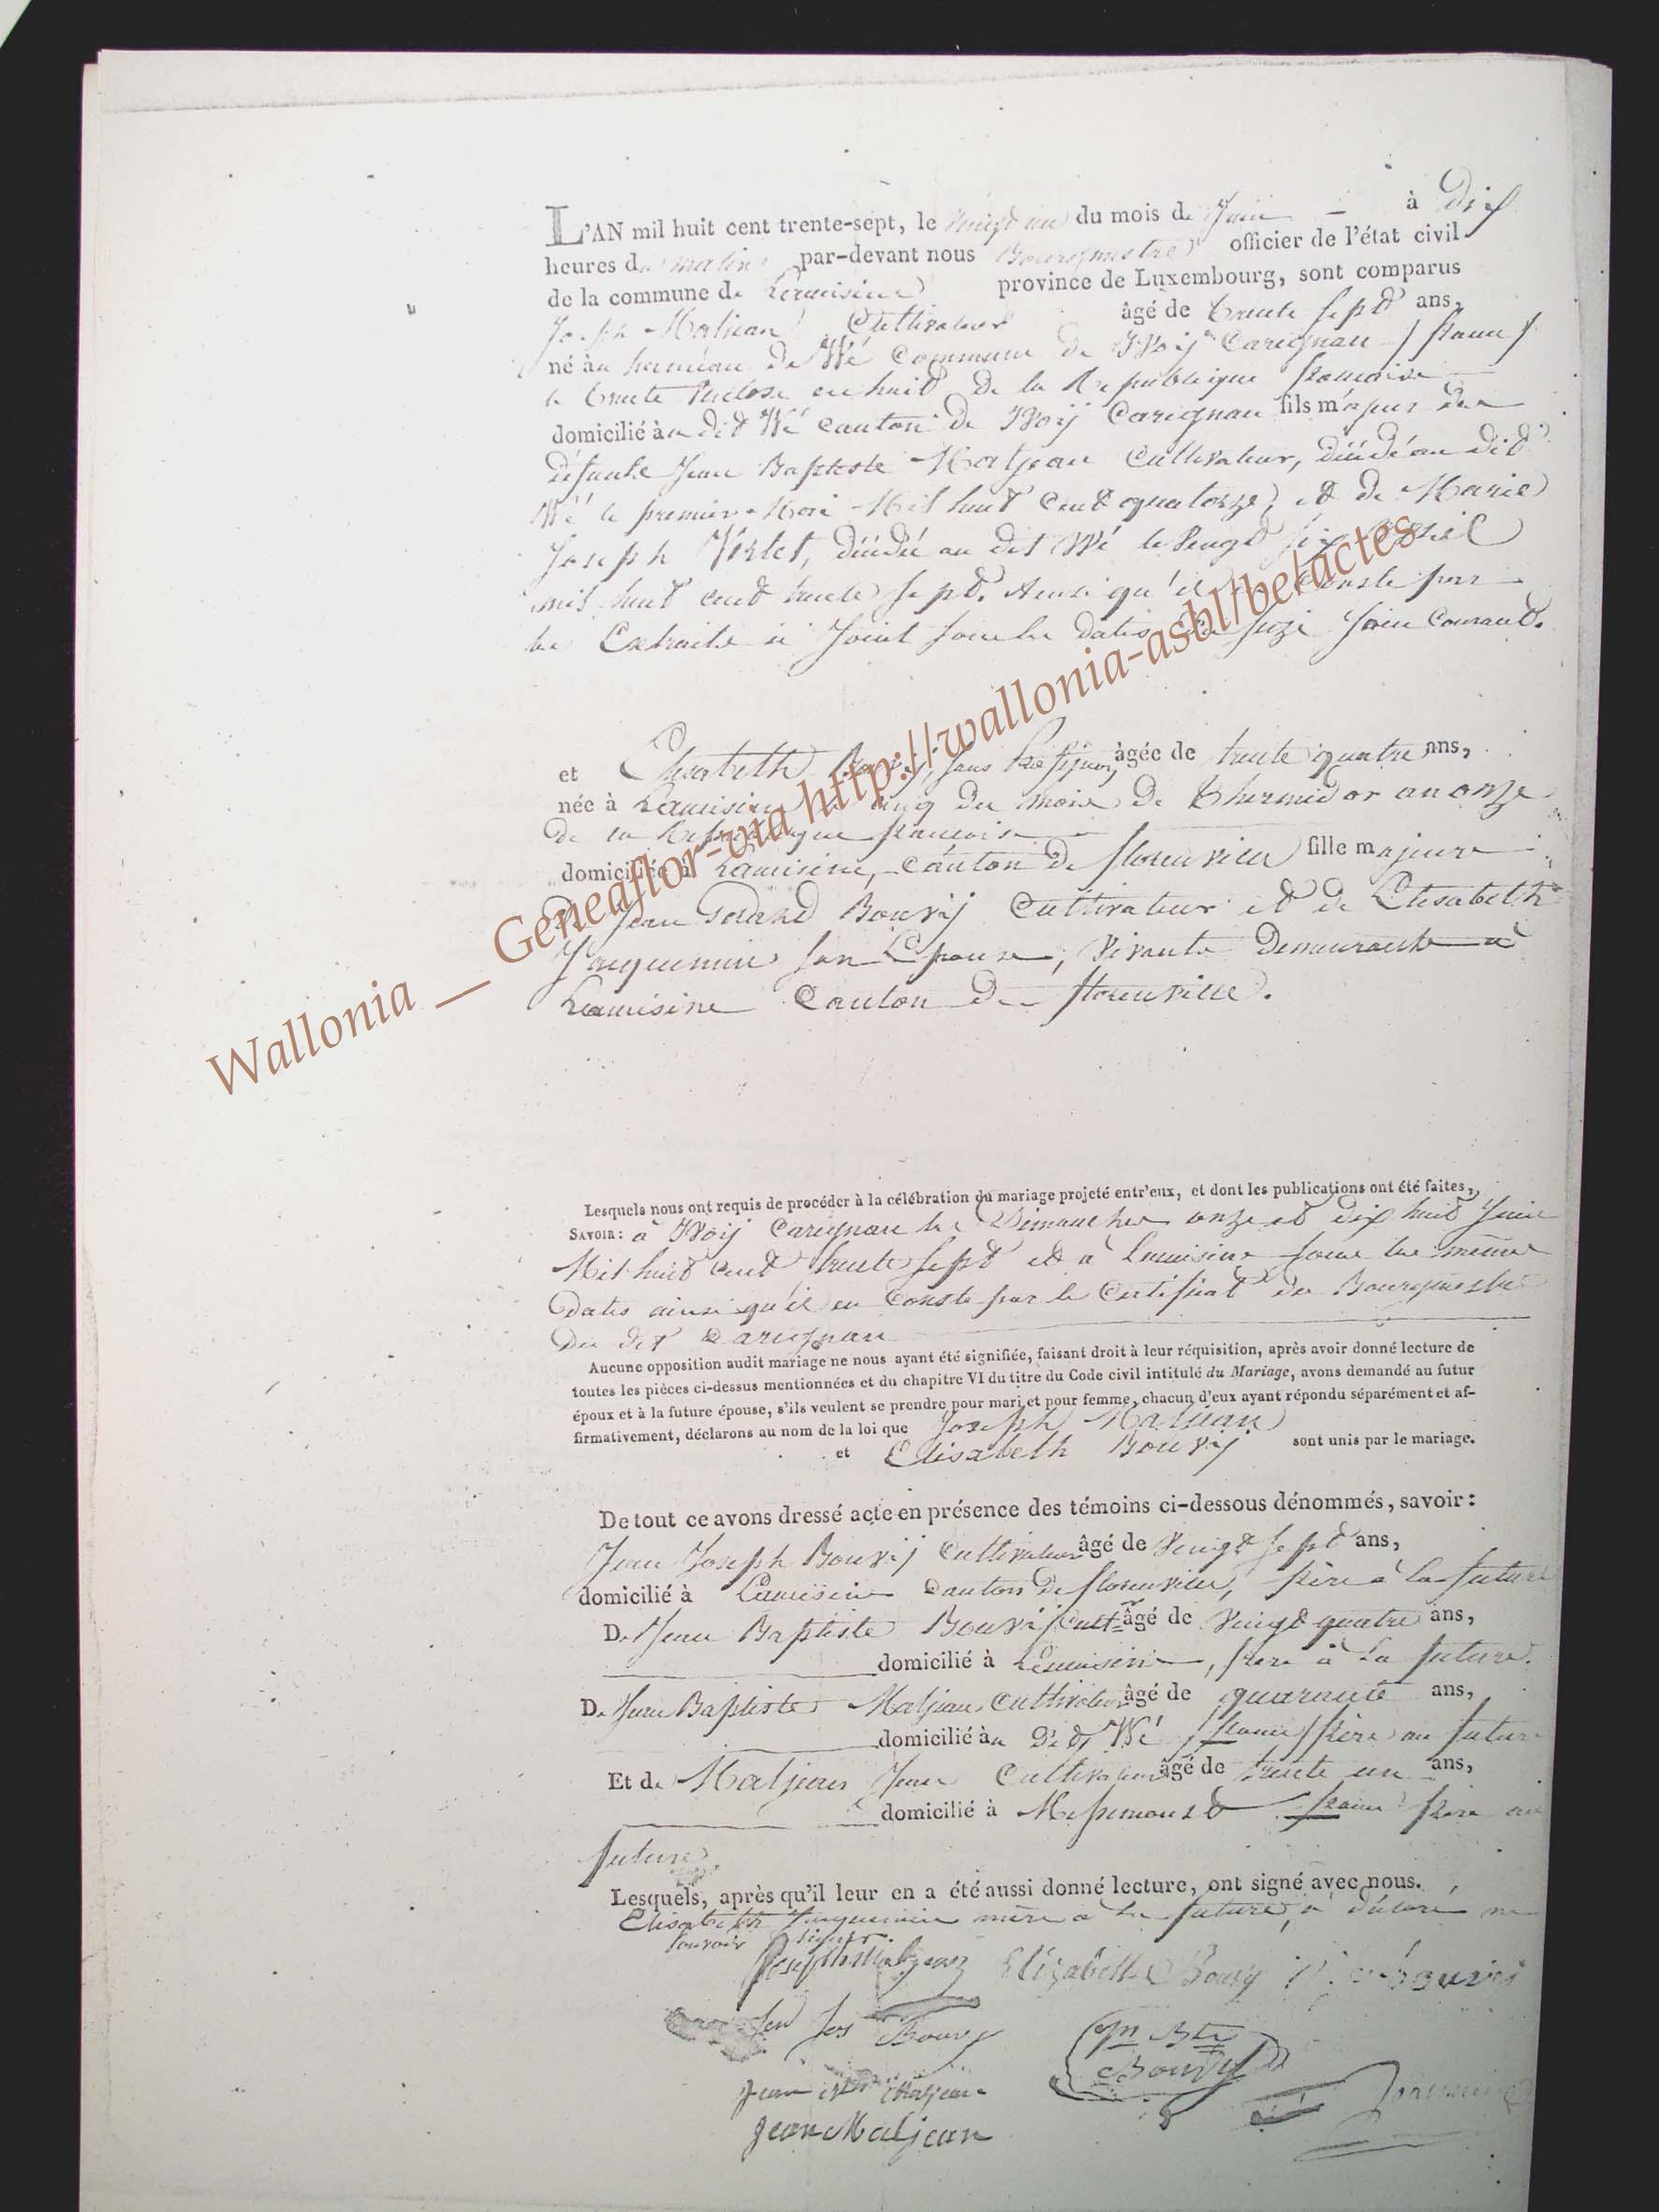 L'AN mil huit cent trente-sept, le vingt un du mois de Juin à Dix
heures du matin par-devant nous Bourgmestre officier de l'état civil
de la commune de province de Luxembourg, sont comparus
Joseph Maljean Cultivateur âgé de trente sept ans,
né au hameau de Wé Commune de Yvoij Carignan / france /
le trente an huit De la Republique francaise
domicilié au dit Wé canton de Yvoij Carignan fils majeur de
défunts Jean Baptiste Maljean Cultivateur, décédé au dit
Wé le premier Mil huit Cent quatorze, et de Marie
Joseph décédée au dit Wé le vingt six avril
mil huit cent trente sept. Ainsi qu'il en Conste par
les Extraits ci Joint sous les dates du seize Juin Courant.
et Elisabeth Bouvij, sans âgée de trente quatre ans,
née à le cinq du mois De thermidor an onze
De la Republique francaise
domiciliée à canton De florenville fille majeure
De Jean Bouvij Cultivateur et de Elisabeth
Jacquemin son Epouse, vivants Demeurants à
Canton De florenville.
Lesquels nous ont requis de procéder à la célébration du mariage projeté entr'eux, et dont les publications ont été faites,
SAVOIR: à Yvoij Carignan les Dimanches onze et dix huit Juin
Mil huit Cent trente sept et à sous les mêmes
dates ainsi qu'il en Conste par le Certificat du Bourgmestre
Du dit Carignan
Aucune opposition audit mariage ne nous ayant été signifiée, faisant droit à leur réquisition, après avoir donné lecture de
toutes les pièces ci-dessus mentionnées et du chapitre VI du titre du Code civil intitulé du Mariage, avons demandé au futur
époux et à la future épouse, s'ils veulent se prendre pour mari et pour femme, chacun d'eux ayant répondu séparément et af-
firmativement, déclarons au nom de la loi que Joseph Maljean
et Elisabeth Bouvij sont unis par le mariage.
De tout ce avons dressé acte en présence des témoins ci-dessous dénommés, savoir:
Jean Joseph Bouvij Cultivateur âgé de vingt sept ans,
domicilié à canton De florenville, frère à la future
De Jean Baptiste Bouvij Cultr âgé de vingt quatre ans,
domicilié à , frere à la future.
De Jean Baptiste Maljean Cultivateur âgé de quarante ans,
domicilié au dit Wé / france / frère au futur
Et de Maljean Jean Cultivateur âgé de trente un ans,
domicilié à france frere au
future
Lesquels, après qu'il leur en a été aussi donné lecture, ont signé avec nous.
Elisabeth Jacquemin mère à la future, à déclaré ne
savoir signer.
Joseph Maljean Elizabeth Bouvy
Jen Jos Bouvy
Jn Bte
Bouvy
Jean Bte Maljean
Jean Maljean
Wallonia __ Geneaflor-via http://wallonia-asbl/be/actes